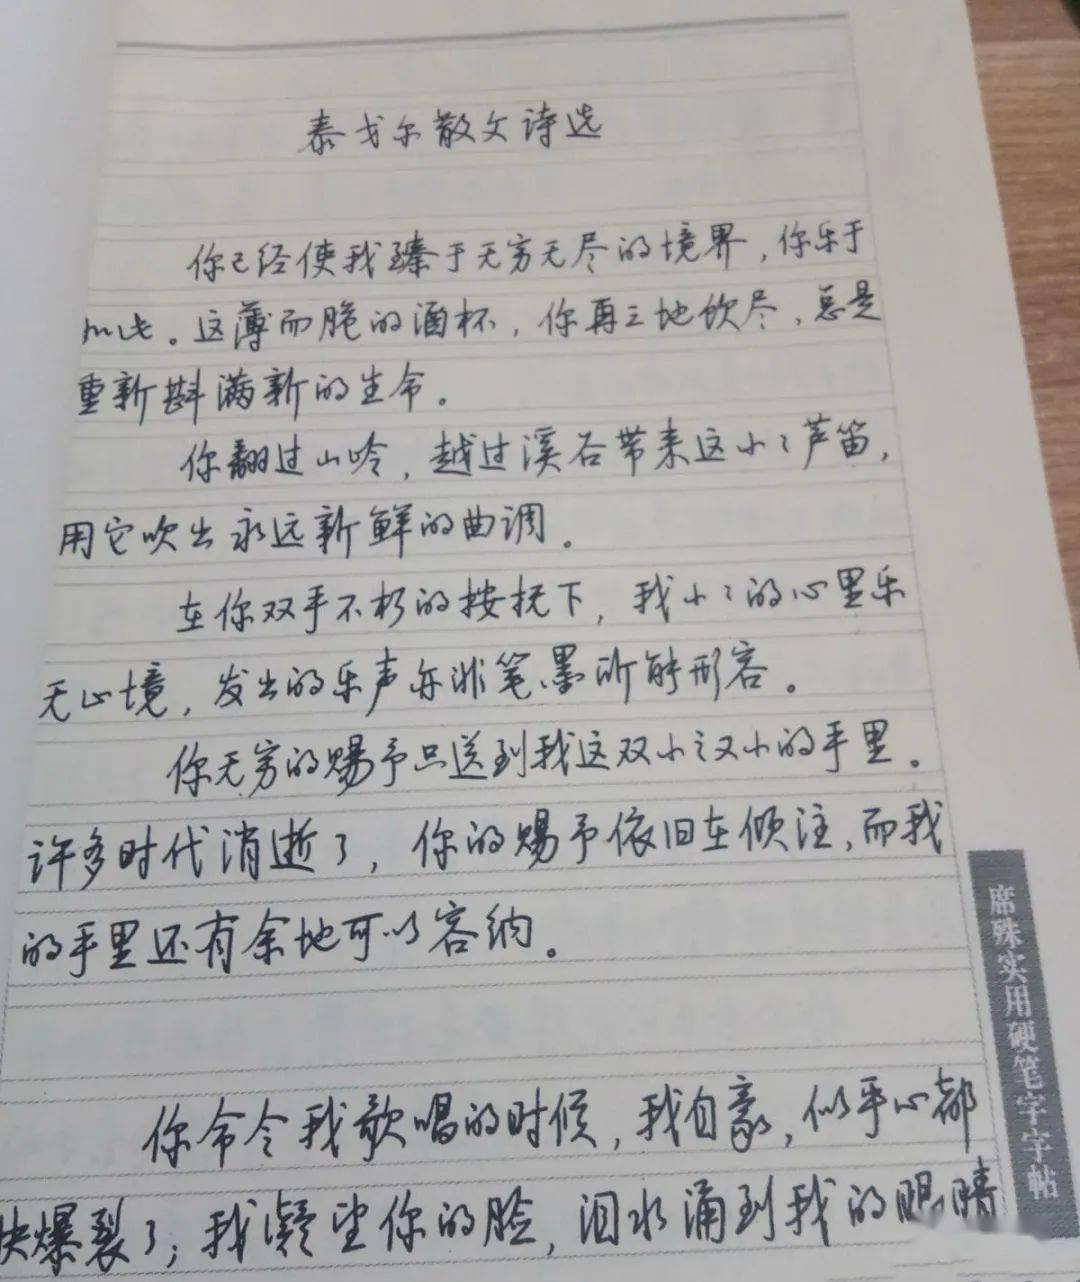 泰戈尔散文诗选
你已经使我臻于无穷无尽的境界，你乐于
如此。这薄而脆的酒杯，你再三地饮尽，总是
重新斟满新的生命。
你翻过山岭，越过溪谷带来这小小芦笛，
用它吹出永远新鲜的曲调。
在你双手不朽的按抚下，我小小的心里乐
无止境，发出的乐声亦非笔墨所能形容。
你无穷的赐予只送到我这双小之又小的手里。
许多时代消逝了，你的赐予依旧在倾注，而我
的手里还有余地可以容纳。
你命令我歌唱的时候，我自豪，似乎心都
快爆裂了；我凝望你的脸，泪水涌到我的眼睛
席殊实用硬笔字字帖